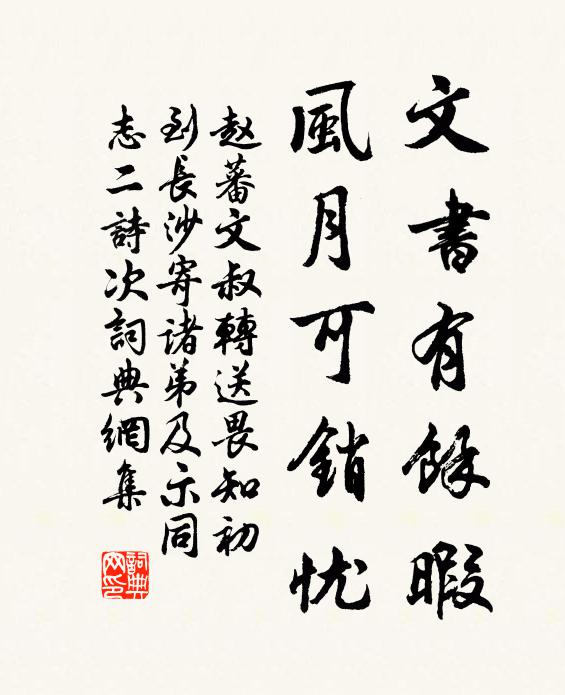 文書有餘暇
風月可銷忧
赵蕃文叔轉送畏知初
到長沙寄諸弟及示同
志二詩次詞典網集
詞典
网印